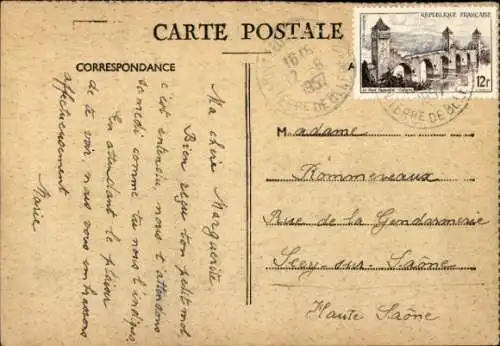 CARTE POSTALE
CORRESPONDANCE
A
RÉPUBLIQUE FRANÇAISE
12F
16 H
2-8
1957
TERRE DE BELF
Ma chère Marguerite,
Bien reçu ton petit mot,
c'est entendu, nous t'attendons
samedi comme tu nous l'indiques.
En attendant le plaisir
de te voir nous vous embrassons
affectueusement
Marie
Madame
Pommereaux
Rue de la Gendarmerie
Scey-sur-Saône
Haute Saône